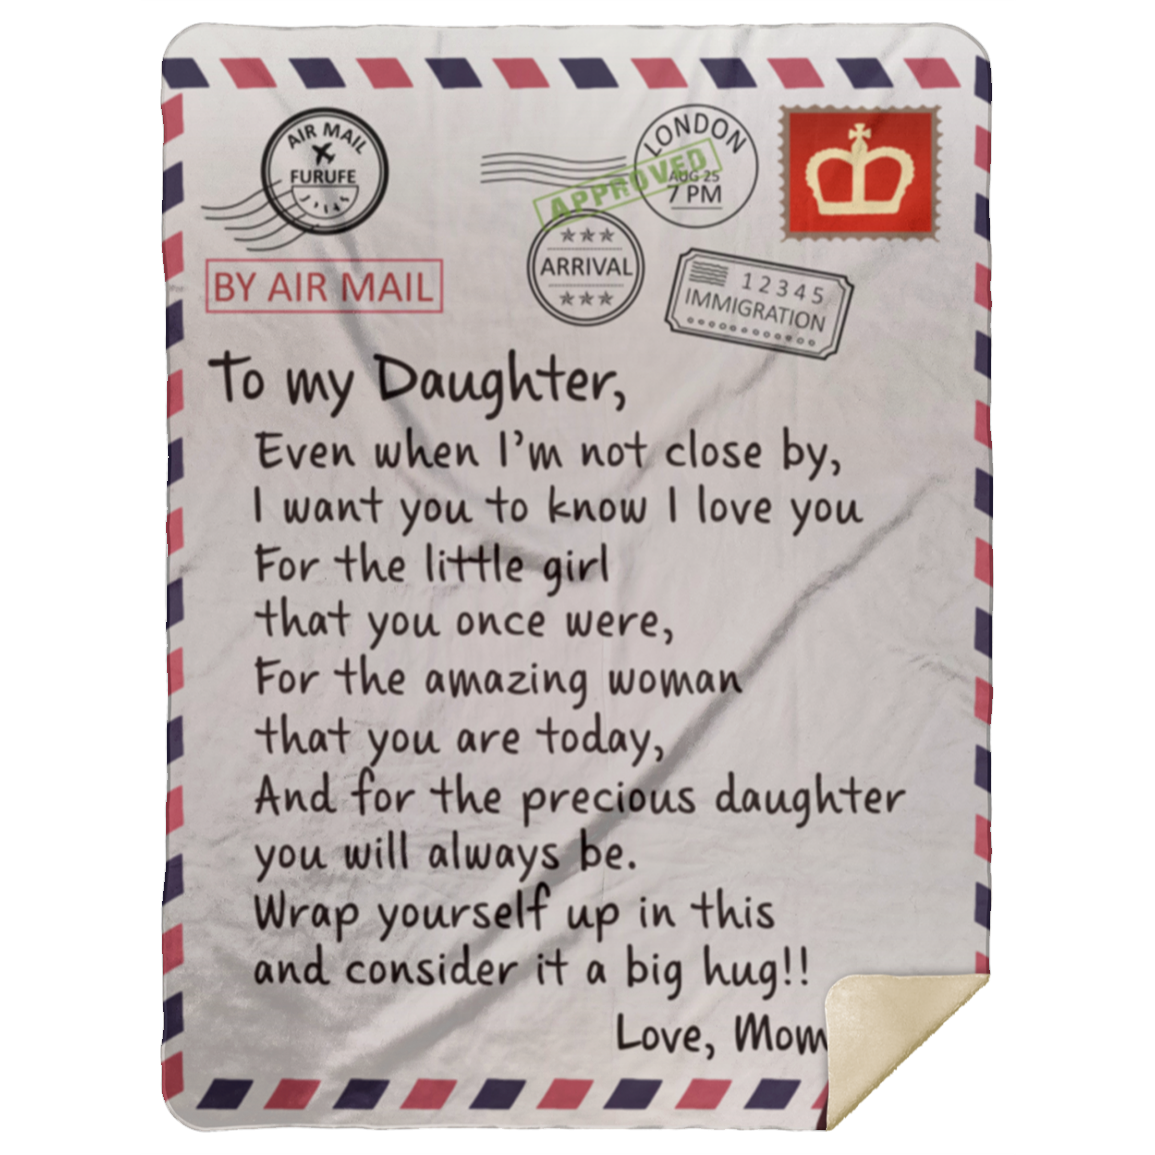 AIR MAIL
FURUFE
LONDON
AUG 25
7 PM
APPROVED
ARRIVAL
12345
IMMIGRATION
BY AIR MAIL
To my Daughter,
Even when I'm not close by,
I want you to know I love you
For the little girl
that you once were,
For the amazing woman
that you are today,
And for the precious daughter
you will always be.
Wrap yourself up in this
and consider it a big hug!!
Love, Mom